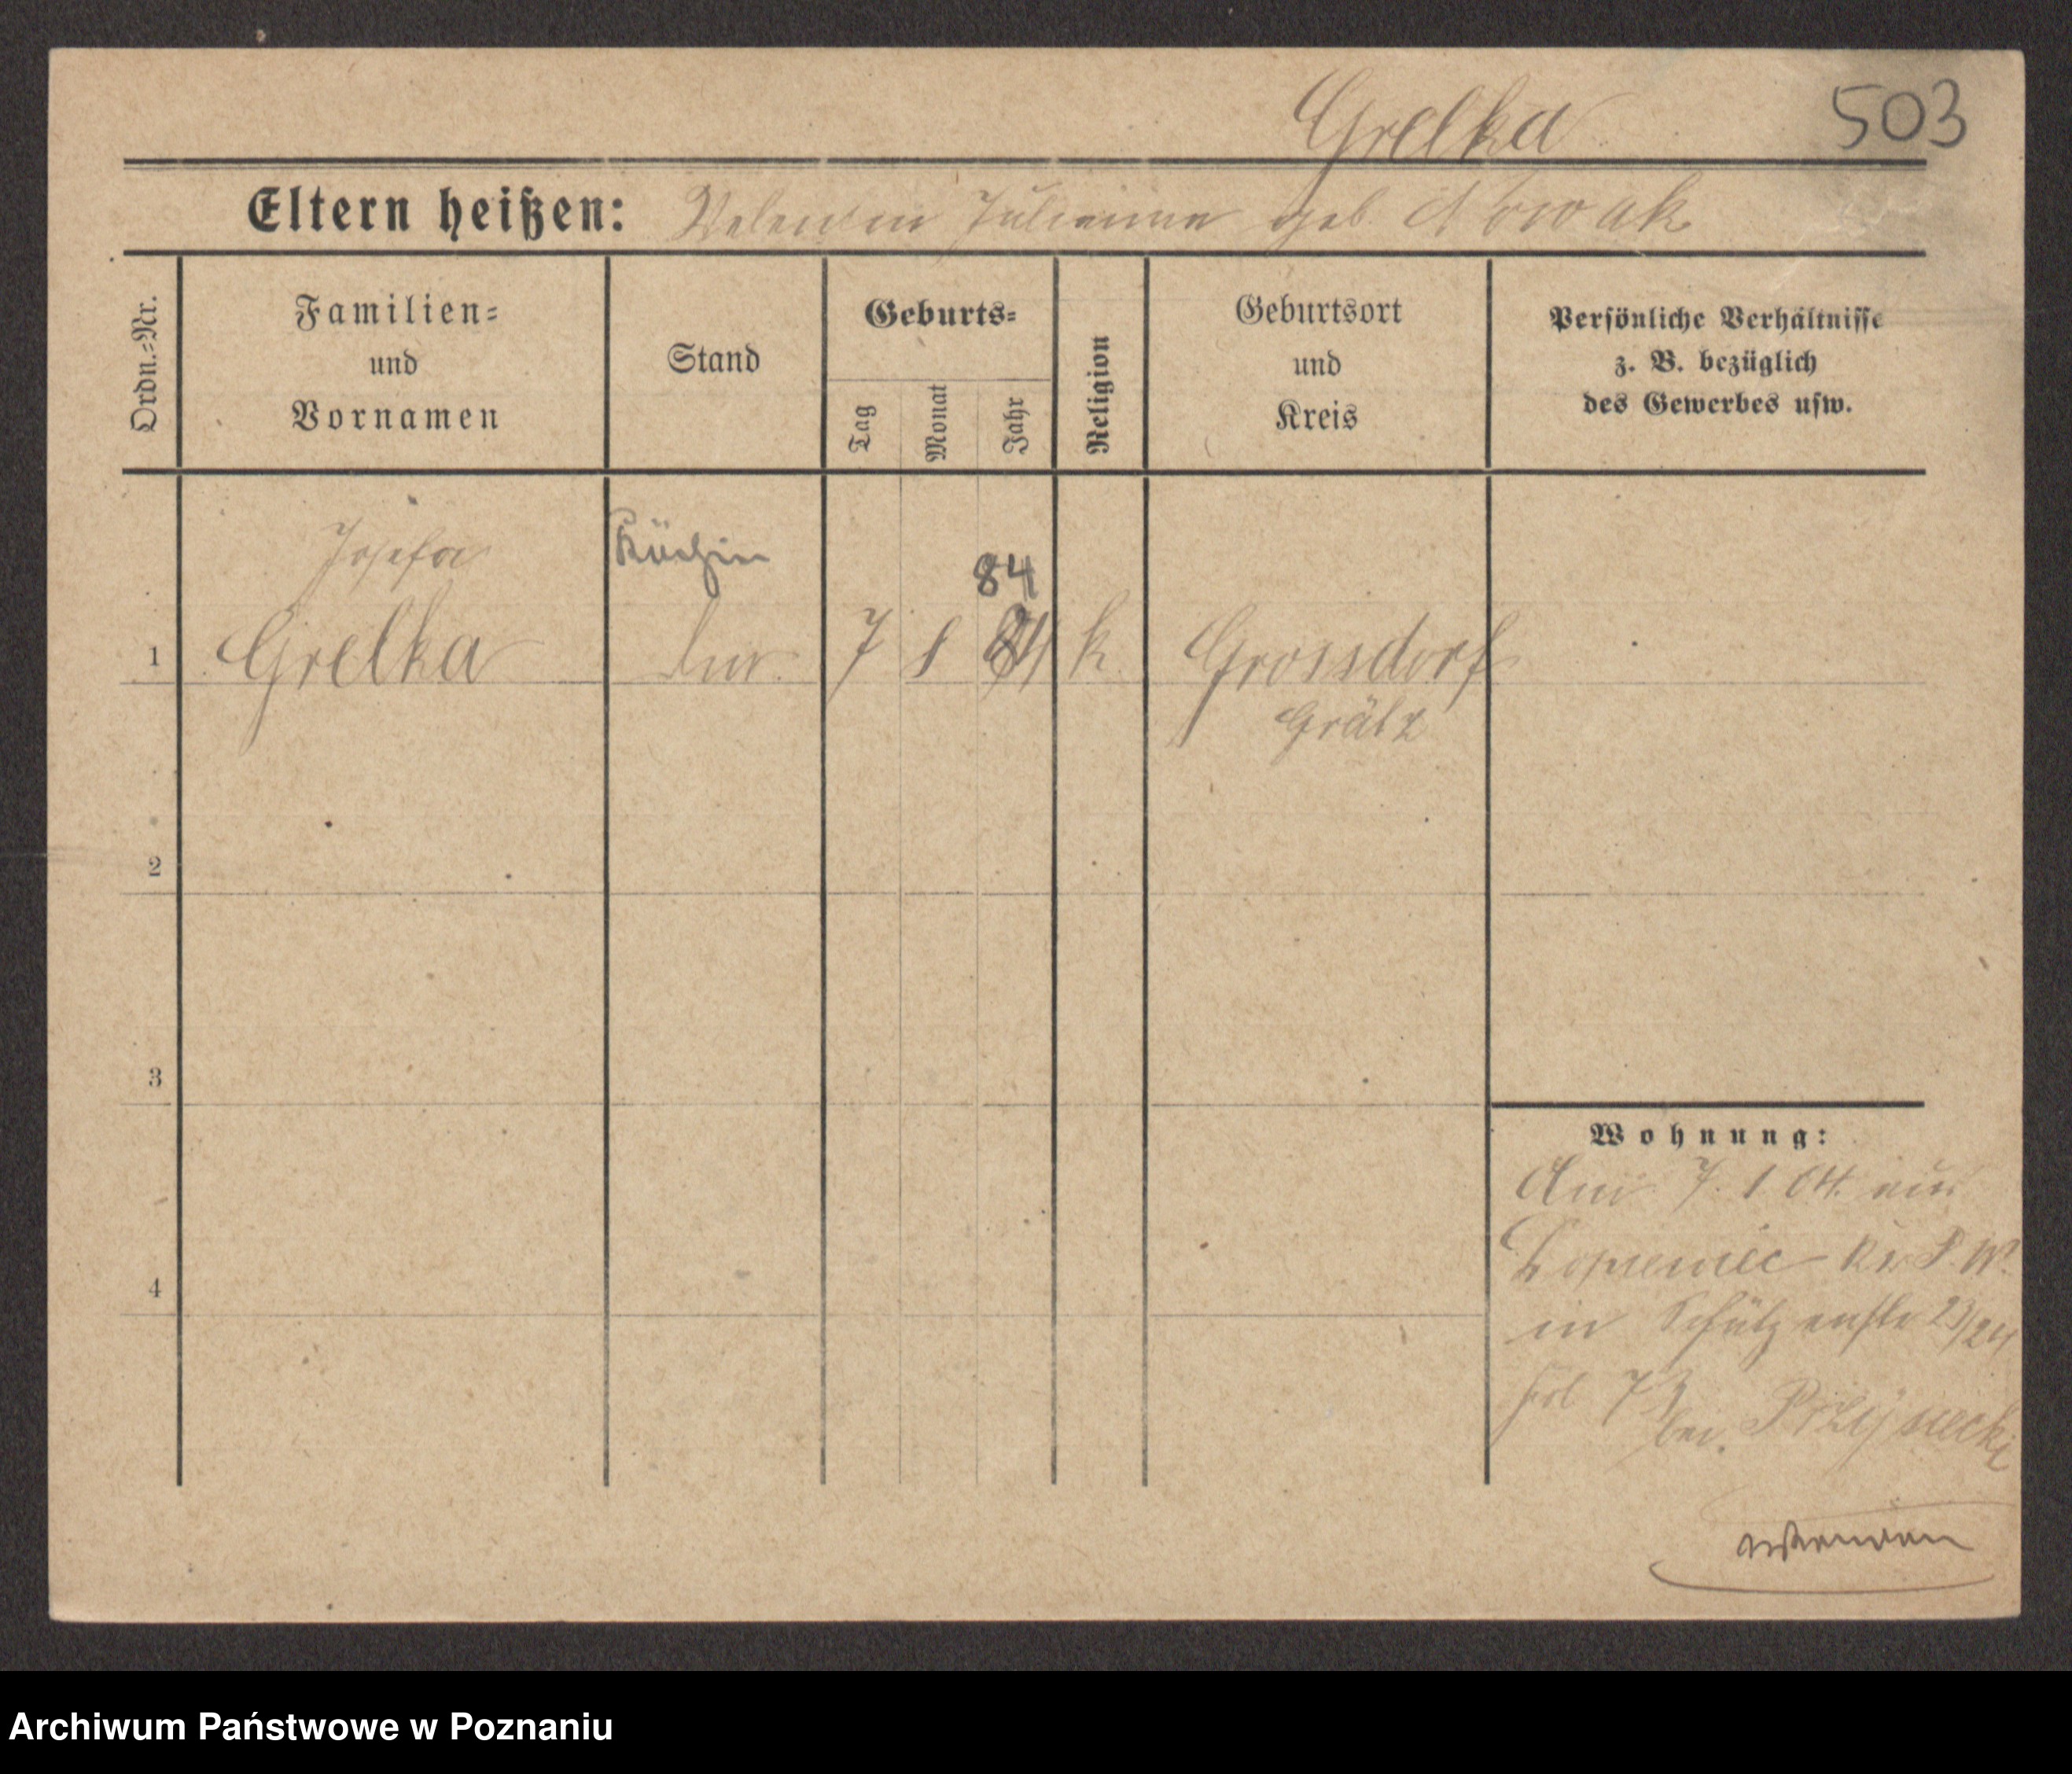 Grelka
503
Eltern heißen: Valentin Julianna geb. Nowak
Ordn.=Nr.
Familien=
und
Vornamen
Stand
Geburts=
Tag
Monat
Jahr
Religion
Geburtsort
und
Kreis
Persönliche Verhältnisse
z. B. bezüglich
des Gewerbes usw.
Josefa
Köchin
84
1 Grelka 7 k. Grossdorf
Grätz
2
3
4
Wohnung:
Am 7. 1 04. aus
Kr. P. W.
in Schützenstr 23/24
bei
Archiwum Państwowe w Poznaniu